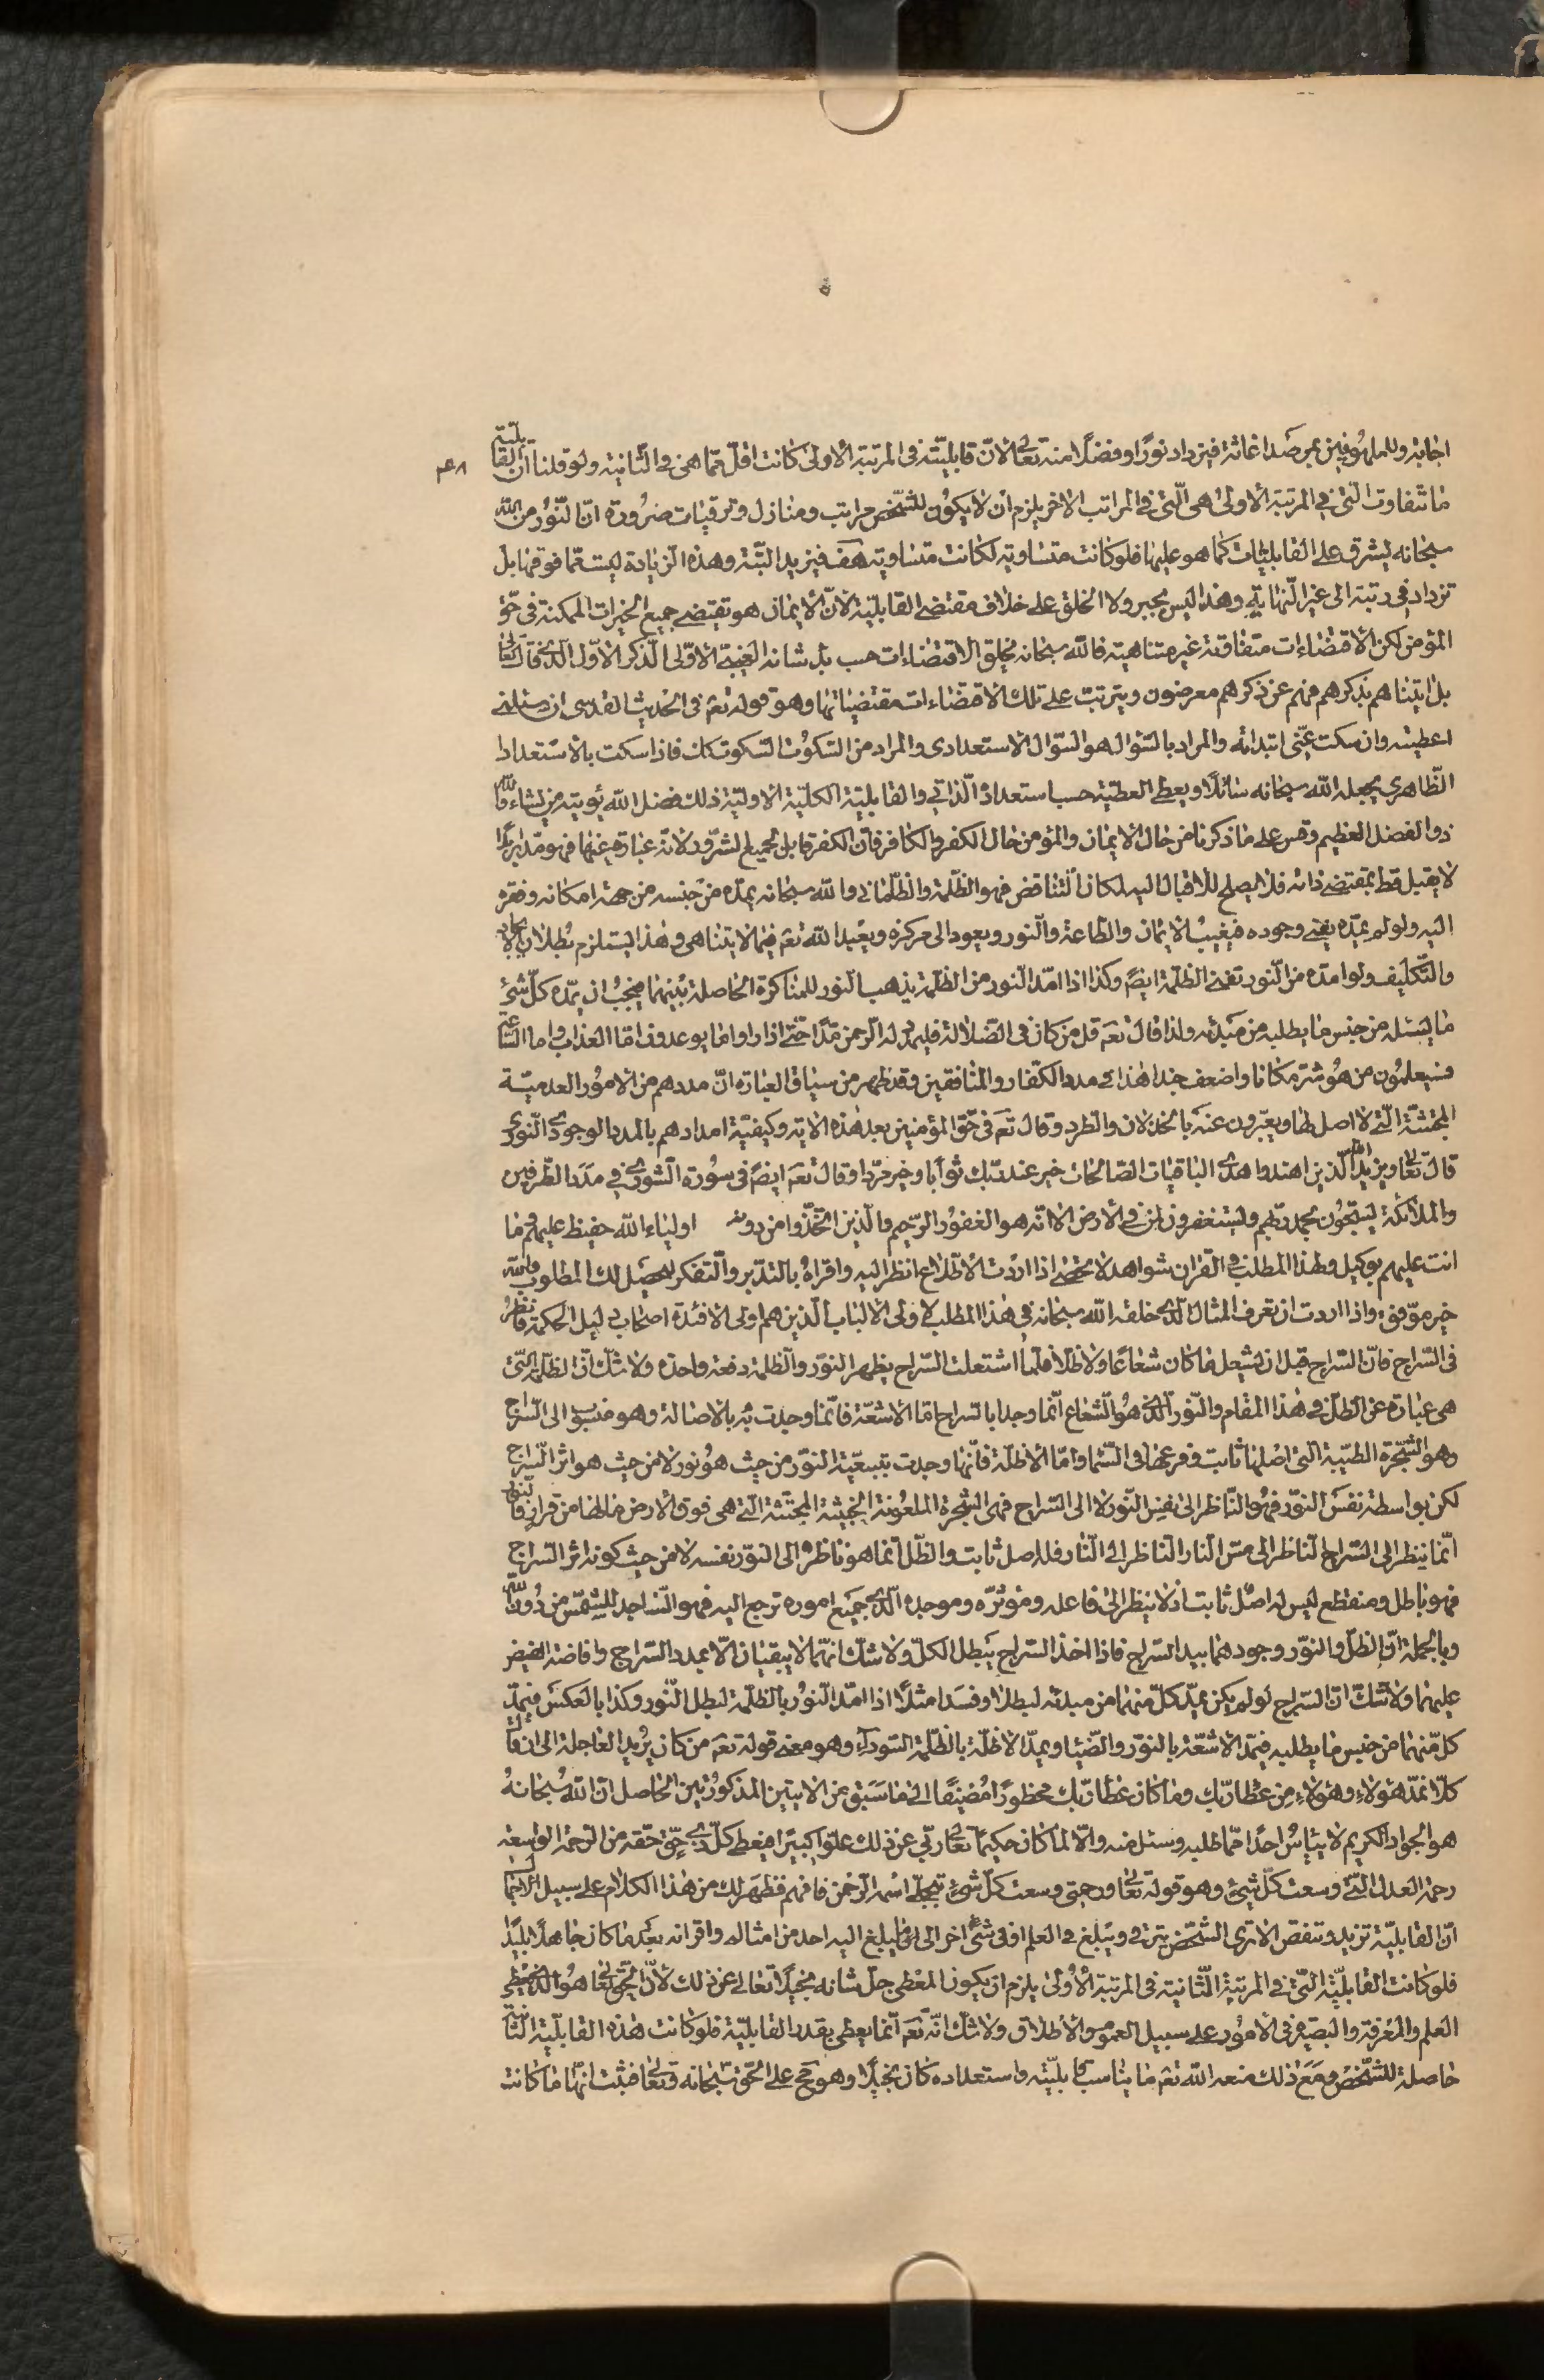 اجابة وللملهوفين بمرصد اغاثة فيزداد نورا وفضلا منه تعالى لانّ قابليّته فى المرتبة الاولى كانت اقلّ ممّا هى فى الثّانية ولو قلنا انّ القابليّة
٣٤٨
ما تتفاوت الّتى فى المرتبة الاولى هى الّتى فى المراتب الاخر يلزم ان لا يكون للشّخص مراتب ومنازل وترقيات ضرورة انّ النّور من اللّه
سبحانه يشرق على القابليّات كما هو عليها فلو كانت متساوية لكانت متساوية هف فيزيد البتّة وهذه الزّيادة ليست ممّا فوقها بل
تزداد فى رتبة الى غير النّهاية وهذا ليس بجبر ولا الخلق على خلاف مقتضى القابليّة لانّ الايمان هو تقتضى جميع الخيرات الممكنة فى حقّ
المؤمن لكن الاقتضاءات متفاوتة غير متناهية فاللّه سبحانه يخلق الاقتضاءات حسب الاوّلى الذّكر الاوّل الّذى قال تعالى
بل اتيناهم بذكرهم فهم عن ذكرهم معرضون ويترتّب على تلك الاقتضاءات مقتضياتها وهو قوله تعم فى الحديث القدسى ان سئلنى
اعطيته وان سكت عنّى ابتدائه والمراد بالسّؤال هو السّؤال الاستعدادى والمراد من السّكوت السّكوت كك فاذا سكت بالاستعداد
الظّاهرى يجعله اللّه سبحانه سائلا ويعطى العطيّة حسب استعداده الذّاتى والقابليّة الكليّة الاوليّة ذلك فضل اللّه يؤتيه من يشاء واللّه
ذو الفضل العظيم وقس على ما ذكرنا من حال الايمان والمؤمن حال الكفر والكافر فانّ الكفر قابل لجميع الشّرور لانّه عبارة عنها فهو مدبر ابدا
لا يقبل قط بمقتضى ذاته فلا يصلح للاقبال اليه لمكان التّناقض فهو الظّلمة والظّلمانى واللّه سبحانه يمدّه من جنسه من جهة امكانه وفقره
اليه ولو لم يمدّه يفنى وجوده فيغيب الايمان والطّاعة والنّور ويعود الى مركزه ويعبد اللّه تعم فيما لا يتناهى وهذا يستلزم بطلان الايجاد
والتّكليف ولو امدّه من النّور تفنى الظّلمة ايضً وكذا اذا امدّ النّور من الظّلمة يذهب النّور للمناكرة الحاصلة بينهما فيجب ان يمدّه كلّ شئ
ما يسئله من جنس ما يطلبه من مبدئه ولذا قال تعم قل من كان فى الضّلالة فليمدد له الرّحمن مدّا حتّى اذا راوا ما يوعدون امّا العذاب وامّا السّاعة
فسيعلمون من هو شرّ مكانا واضعف جندا هذا فى مدد الكفّار والمنافقين وقد ظهر من سياق العبارة انّ مددهم من الامور العدميّة
المجتثّة الّتى لا اصل لها ويعبّرون عنه بالخذلان والطّرد وقال تعم فى حقّ المؤمنين بعد هذه الاية وكيفيّة امدادهم بالمدد الوجودى النّورى
قال تعالى ويزيد اللّه الّذين اهتدوا هدى والباقيات الصّالحات خير عند ربّك ثوابا وخير مردّا وقال تعم ايضً فى سورة الشّورى فى مدد الطّرفين
والملائكة يسبّحون بحمد ربّهم ويستغفرون لمن فى الارض الا انّه هو الغفور الرّحيم والّذين اتّخذوا من دونه اولياء اللّه حفيظ عليهم وما
انت عليهم بوكيل ولهذا المطلب فى القران شواهد لا تحصى اذا اردت الاطّلاع انظر اليه واقراه بالتدبّر والتّفكر ليحصل لك المطلوب واللّه
خير موفّق واذا اردت ان تعرف المثال الّذى خلقه اللّه سبحانه فى هذا المطلب لاولى الالباب الّذين هم اولى الافئدة اصحاب دليل الحكمة فانظر
فى السّراج فانّ السّراج قبل ان يشعل ما كان شعاعا ولا ظلّا فلمّا اشتعلت السّراج يظهر النّور والظّلمة دفعة واحدة ولا شكّ انّ الظّلمة الّتى
هى عبارة عن الظّلّ فى هذا المقام والنّور الّذى هو الشّعاع انّما وجدا بالسّراج امّا الاشعّة فانّما وجدت به بالاصالة وهو منسوب الى السّراج
وهو الشّجرة الطّيّبة الّتى اصلها ثابت وفرعها فى السّماء وامّا الاظلّة فانّها وجدت بتبعيّة النّور من حيث هو نور لا من حيث هو اثر السّراج
لكن بواسطة نفس النّور فهو النّاظر الى نفس النّور لا الى السّراج فهى الشّجرة الملعونة الخبيثة المجتثّة الّتى هى فوق الارض ما لها من قرار فالنّور
انّما ينظر الى السّراج النّاظر الى مسّ النّار النّاظر الى النّار فله اصل ثابت والظّلّ انّما هو ناظر الى النّور نفسه لا من حيث كونه اثر السّراج
فهو باطل ومنقطع ليس له اصل ثابت اذ لا ينظر الى فاعله ومؤثّره وموجده الّذى جميع اموره ترجع اليه فهو السّاجد للشّمس من دون اللّه
وبالجملة انّ الظّلّ والنّور وجودهما بيد السّراج فاذا اخذ السّراج يبطل الكلّ ولا شكّ انّهما لا يبقيان الّا بمدد السّراج وافاضة الفيض
عليهما ولا شكّ انّ السّراج لو لم يكن يمدّ كلّ منهما من مبدئه لبطلا وفسدا مثلا اذا امدّ النّور بالظّلمة لبطل النّور وكذا بالعكس فيمدّ
كلّ منهما من جنس ما يطلبه فيمدّ الاشعّة بالنّور والضّياء ويمدّ الاظلّة بالظّلمة السّوداء وهو معنى قوله تعم من كان يريد العاجلة الى ان قال
كلّا نمدّ هؤلاء وهؤلاء من عطاء ربّك وما كان عطاء ربّك محظورا مضيفا الى ما سبق من الايتين المذكورتين الحاصل انّ اللّه سبحانه
هو الجواد الكريم لا يئايس احدا ممّا طلبه وسئل منه والّا لما كان حكيما تعالى ربّى عن ذلك علوّا كبيرا فيعطى كلّ ذى حقّ حقّه من الرّحمة الواسعة
رحمة العدل الّتى وسعت كلّ شئ وهو قوله تعالى ورحمتى وسعت كلّ شئ بتجلّى اسمه الرّحمن فافهم فظهر لك من هذا الكلام على سبيل
انّ القابليّة تزيد وتنقص الا ترى الشّخص يترقّى ويبلغ فى العلم او فى شئ اخر الى ما لم يبلغ اليه احد من امثاله واقرانه بعد ما كان جاهلا بليدا
فلو كانت القابليّة الّتى فى المرتبة الثّانية فى المرتبة الاولى يلزم ان يكون المعطى جلّ شانه بخيلا تعالى عن ذلك لانّ الحقّ تعالى هو الّذى يعطى
العلم والمعرفة والبصيرة فى الامور على سبيل العموم والاطلاق ولا شكّ انّه تعم انّما يعطى بقدر القابليّة فلو كانت هذه القابليّة الثّانية
حاصلة للشّخص ومع ذلك منعه اللّه تعم ما يناسب قابليّته واستعداده كان بخيلا وهو قبيح على الحقّ سبحانه وتعالى فثبت انّها ما كانت